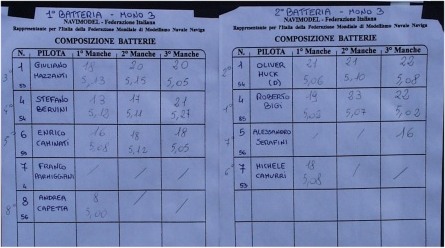 1° BATTERIA - MONO 3
NAVIMODEL - Federazione Italiana
Rappresentante per l'Italia della Federazione Mondiale di Modellismo Navale Naviga
COMPOSIZIONE BATTERIE
N. PILOTA 1° Manche 2° Manche 3° Manche
3° 1 GIULIANO MAZZANTI 20 20
53 5,13 5,15 5,05
4° 4 STEFANO BERVINI 13 17 21
54 5,11 5,27
5° 6 ENRICO CAMINATI 16 18 18
55 5,08 5,12 5,05
7 FRANCO PARMIGGIANI / / /
8° 8 ANDREA CAPETTA 8 / /
56 5,00
2° BATTERIA - MONO 3
NAVIMODEL - Federazione Italiana
Rappresentante per l'Italia della Federazione Mondiale di Modellismo Navale Naviga
COMPOSIZIONE BATTERIE
N. PILOTA 1° Manche 2° Manche 3° Manche
1 OLIVER HUCK (D) 21 21 22
54 5,06 5,10 5,08
4 ROBERTO BIGI 19 23 22
5,07 5,02
7° 5 ALESSANDRO SERAFINI / / 16
56
6° 7 MICHELE CAMURRI 18 / /
53 5,08